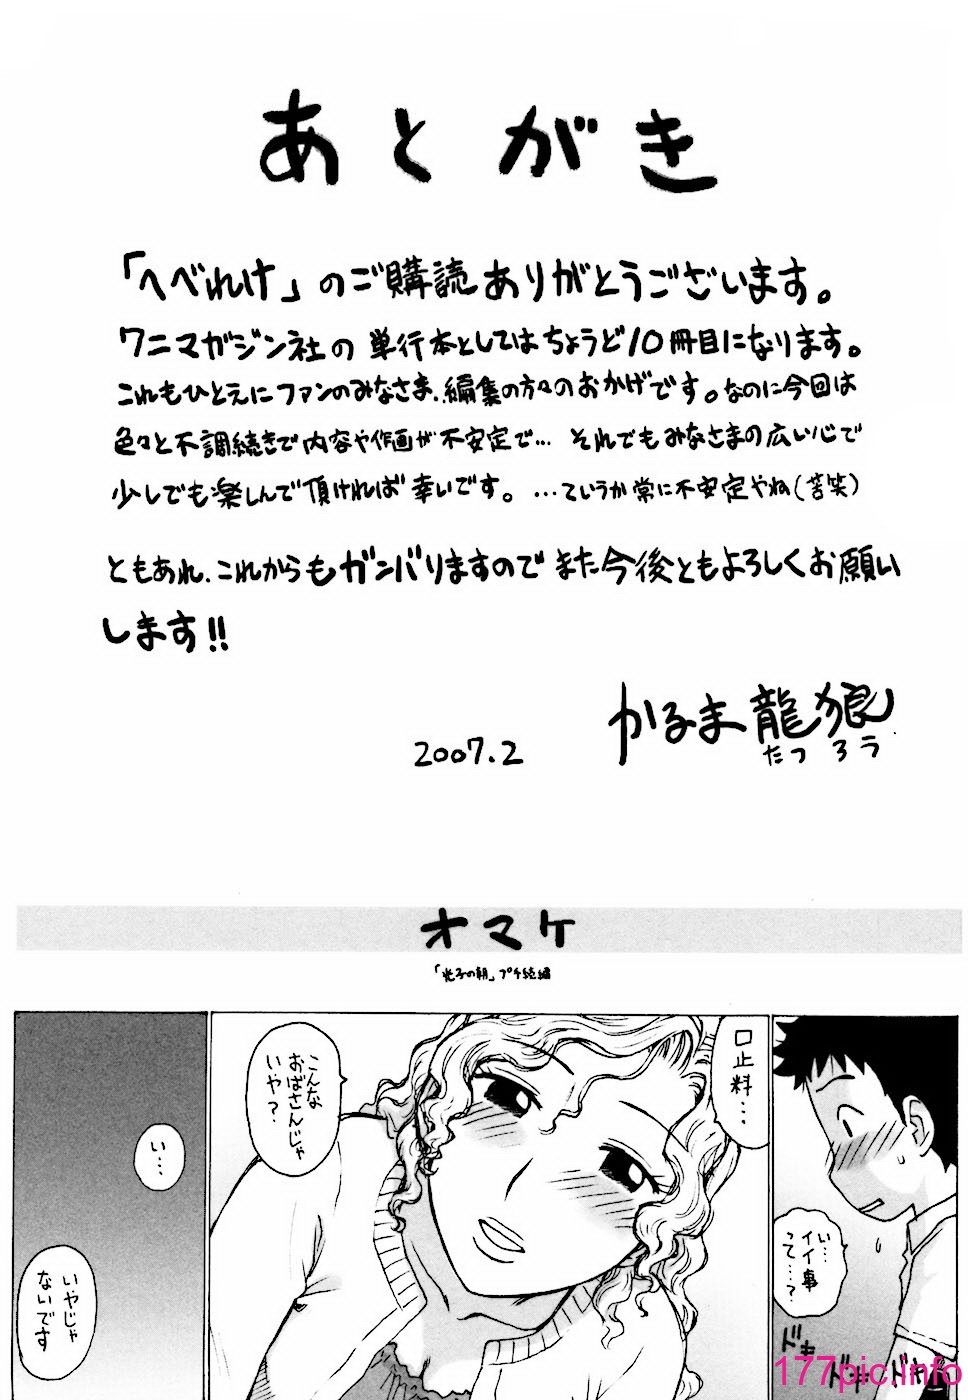 あとがき
「へべれけ」のご購読ありがとうございます。
ワニマガジン社の単行本としてはちょうど10冊目になります。
これもひとえにファンのみなさま、編集の方々のおかげです。なのに今回は
色々と不調続きで内容や作画が不安定で… それでもみなさまの広い心で
少しでも楽しんで頂ければ幸いです。…ていうか常に不安定やね(苦笑)
ともあれ、これからもガンバりますのでまた今後ともよろしくお願い
します!!
かるま龍狼
たつ ろう
2007.2
オマケ
「光子の朝」プチ続編
い…
イイ事
って…?
ドキ
ドキ
ドキ
口止料…
こんな
おばさんじゃ
いや?
い…
いやじゃ
ないです
177pic.info